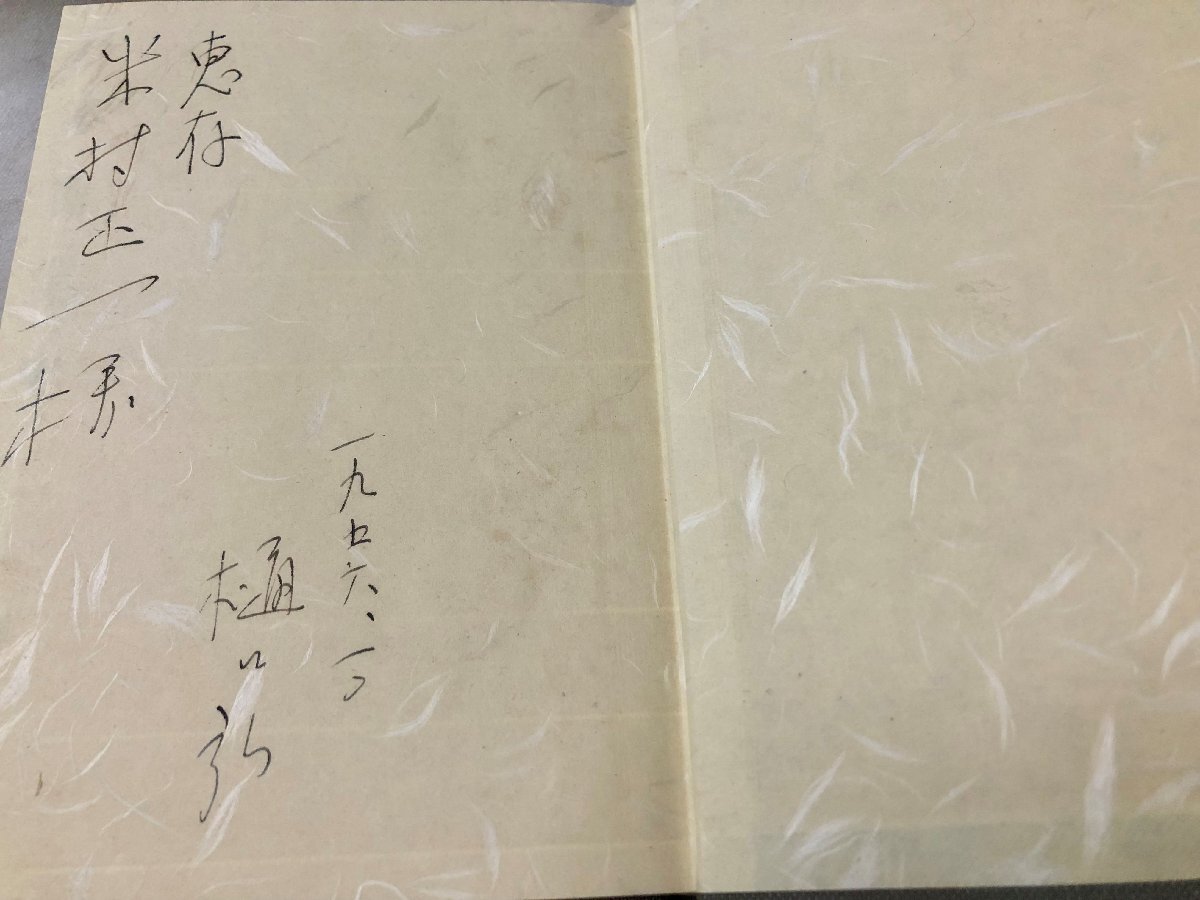 恵存
米村正一様
一九七六、一〇
樋口